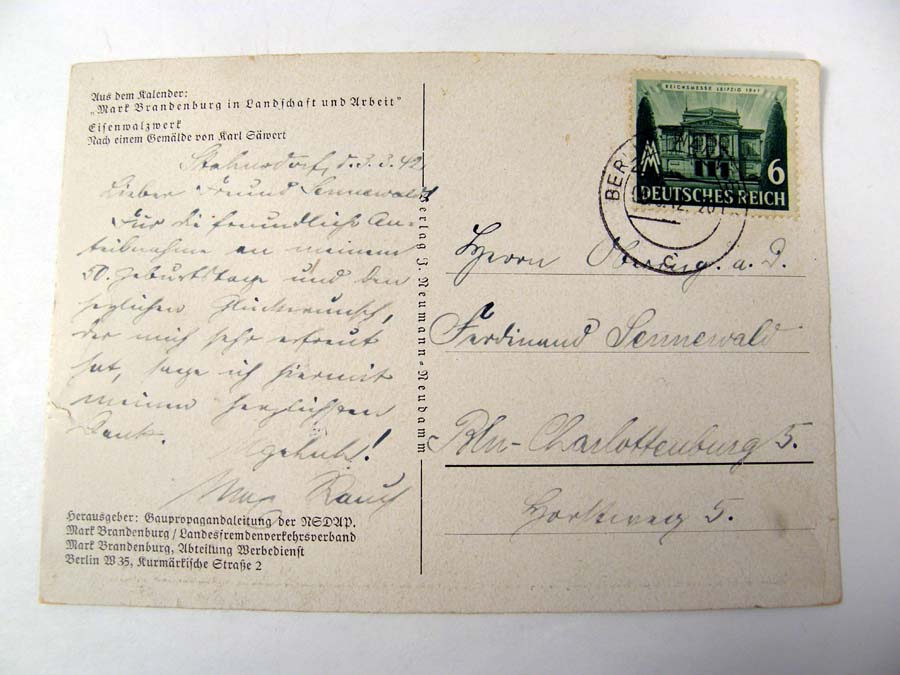 Aus dem Kalender:
„Mark Brandenburg in Landschaft und Arbeit"
Eisenwalzwerk
Nach einem Gemälde von Karl Säwert
Stahnsdorf, d. 3.3.42
Lieber Freund Sennewald
Für die freundliche An-
teilnahme an meinem
50. Geburtstage und den
herzlichen Glückwunsch,
der mich sehr erfreut
hat, sage ich hiermit
meinen herzlichsten
Dank.
Max Rauch
Herausgeber: Gaupropagandaleitung der NSDAP.
Mark Brandenburg / Landesfremdenverkehrsverband
Mark Brandenburg, Abteilung Werbedienst
Berlin W 35, Kurmärkische Straße 2
Verlag J. Neumann-Neudamm
REICHSMESSE LEIPZIG 1941
MM
6
DEUTSCHES REICH
BER
c
Herrn Obering. a. D.
Ferdinand Sennewald
Bln-Charlottenburg 5.
Horstweg 5.